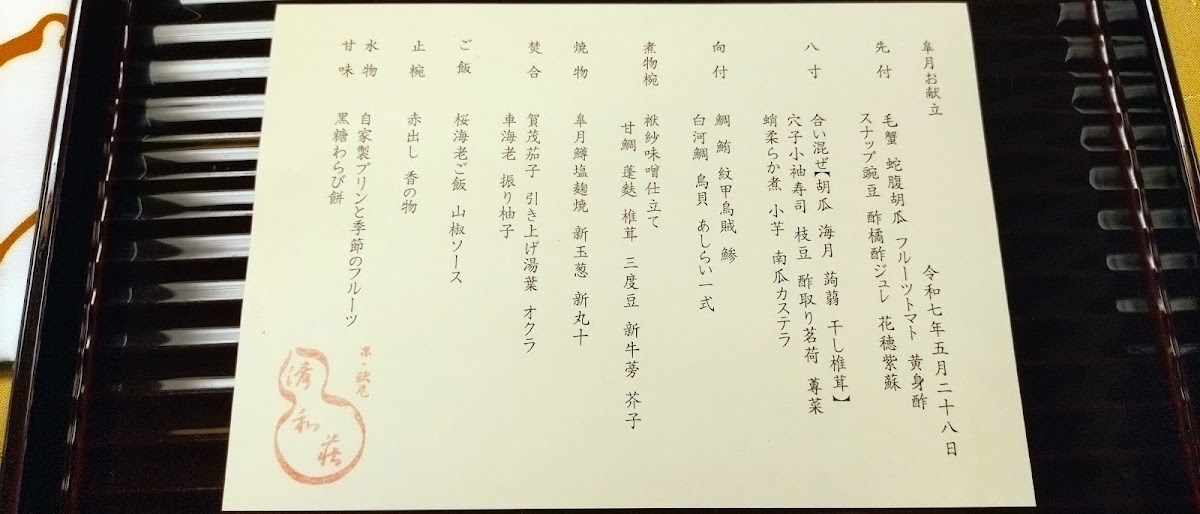 皐月お献立
令和七年五月二十八日
先付
毛蟹 蛇腹胡瓜 フルーツトマト 黄身酢
スナップ豌豆 酢橘酢ジュレ 花穂紫蘇
八寸
合い混ぜ【胡瓜 海月 蒟蒻 干し椎茸】
穴子小袖寿司 枝豆 酢取り茗荷 蓴菜
蛸柔らか煮 小芋 南瓜カステラ
向付
鯛 鮪 紋甲烏賊 鯵
白河鯛 鳥貝 あしらい一式
煮物椀
袱紗味噌仕立て
甘鯛 蓬麩 椎茸 三度豆 新牛蒡 芥子
焼物
皐月鱒塩麹焼 新玉葱 新丸十
焚合
賀茂茄子 引き上げ湯葉 オクラ
車海老 振り柚子
ご飯
桜海老ご飯 山椒ソース
止椀
赤出し 香の物
水物
自家製プリンと季節のフルーツ
甘味
黒糖わらび餅
京・伏見
清和荘